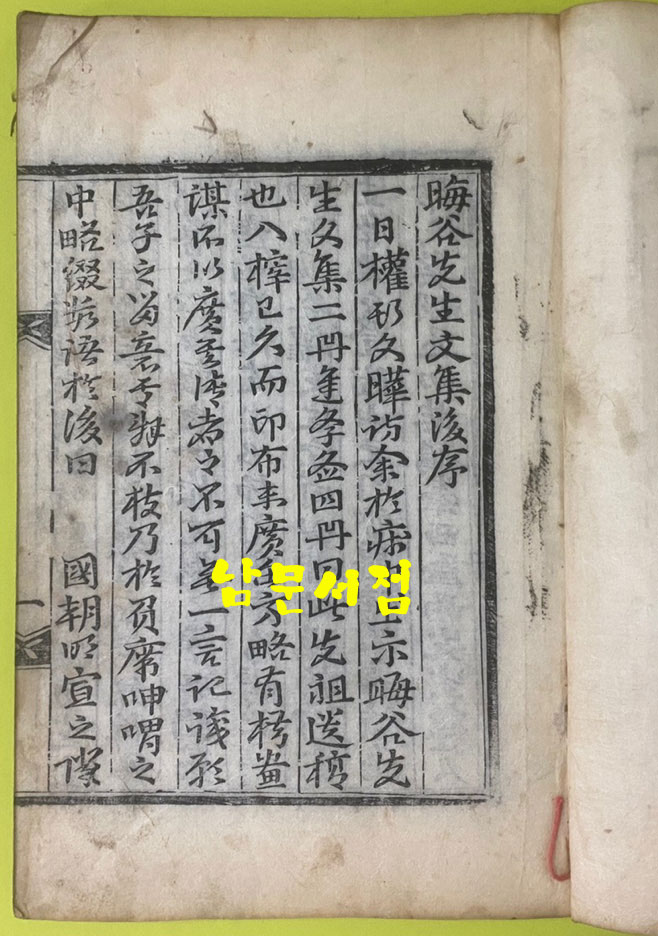 晦谷先生文集後序
一日權斯文曄訪余於病中出示晦谷先
生文集二冊年孝四冊曰此先祖遺稿
也入榟已久而印布未廣今方略有
謀所以廣其傳者之不可無一言記識
吾子之留意不敢不枝乃於負席呻喟之
中略綴數語於後曰 國朝明宣之際
남문서점